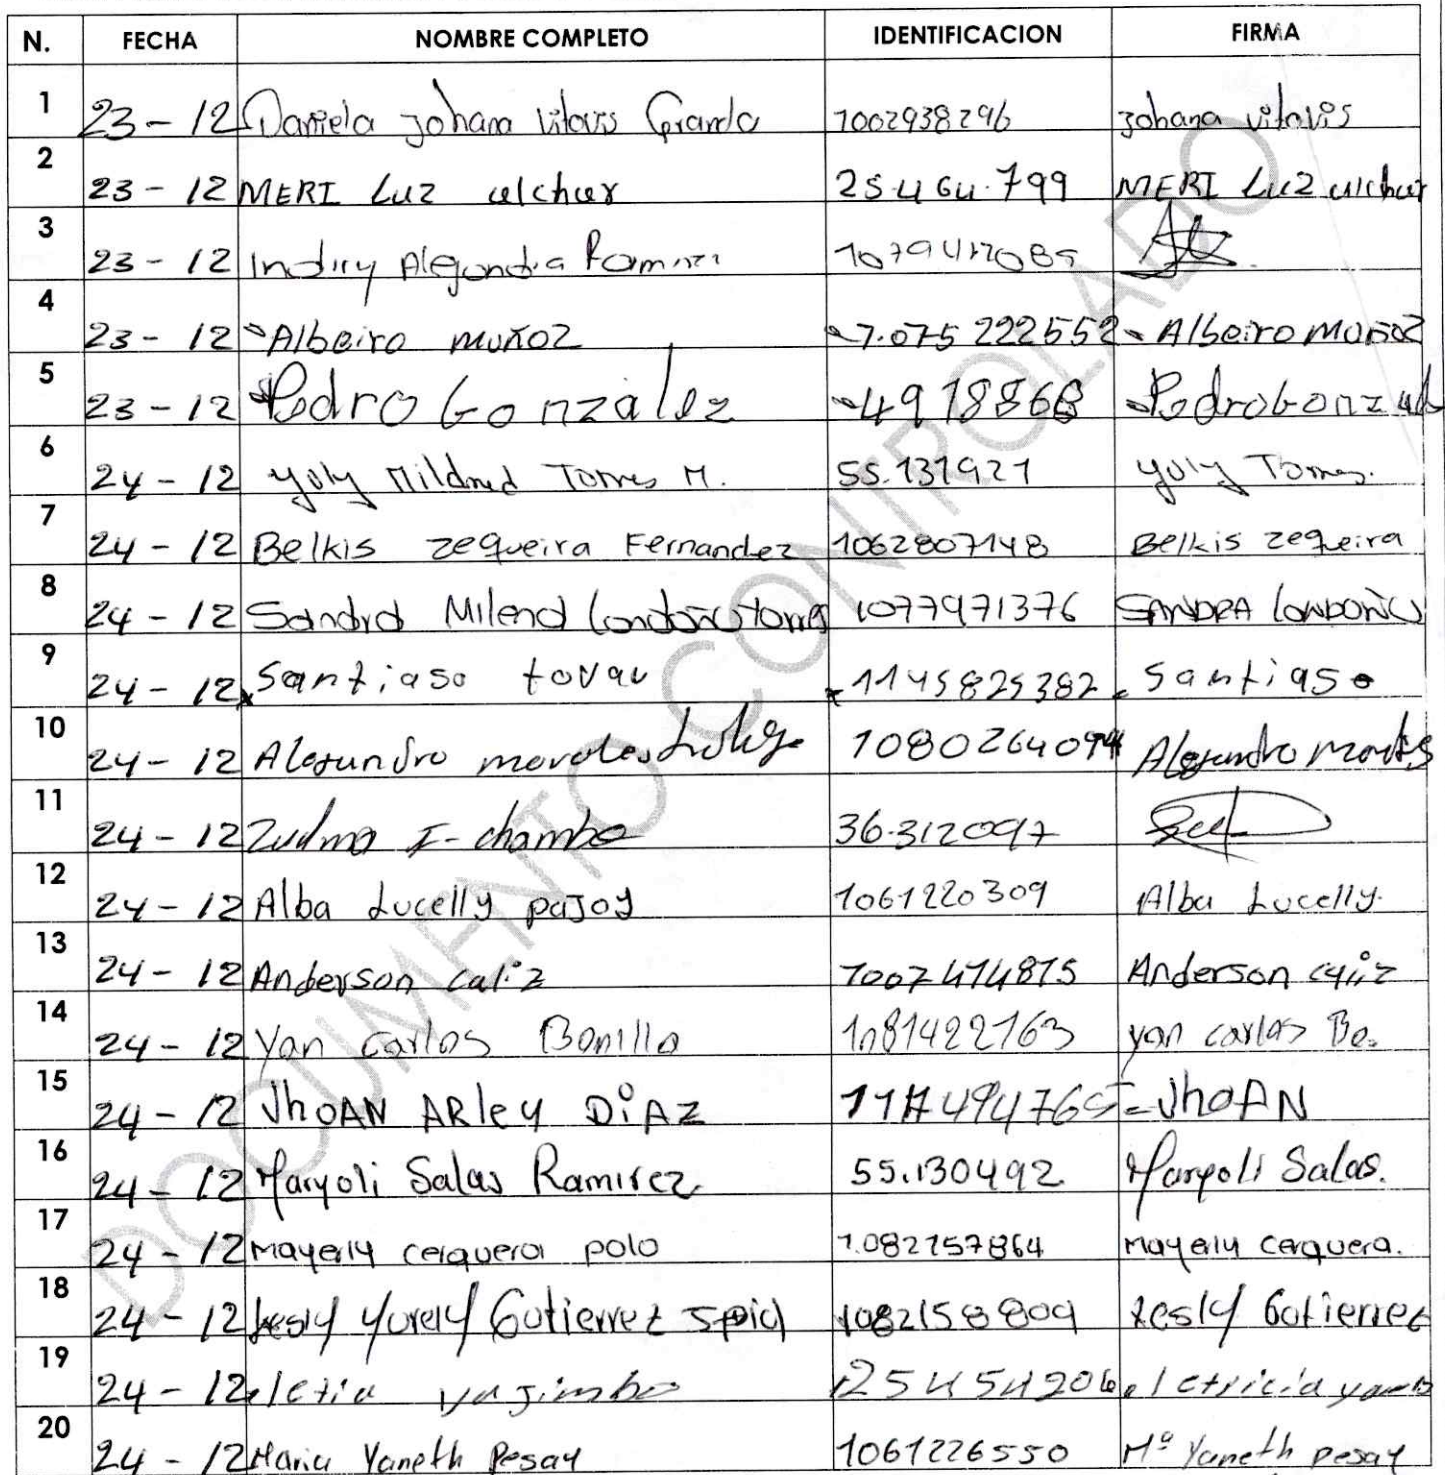 N. FECHA NOMBRE COMPLETO IDENTIFICACION FIRMA
1 23-12 Daniela Johana Vitovis Granda 1002938296 Johana Vitovis
2 23-12 MERI Luz ulchur 25.464.799 MERI Luz ulchur
3 23-12 Alejandra Ramirez 1079412085
4 23-12 Albeiro muñoz 1.075222552 Albeiro muñoz
5 23-12 Pedro Gonzalez 4918868 Pedro Gonzalez
6 24-12 yuly Mildred Torres M. 55.131921 yuly Torres.
7 24-12 Belkis zequeira Fernandez 1062807148 Belkis zequeira
8 24-12 Sandra Milena Londoño Torres 1077971376 SANDRA LONDOÑO
9 24-12 Santiaso tovar 1145825382 Santiaso
10 24-12 Alejandro morales 1080264094 Alejandro morales
11 24-12 Zulma I- chambo 36.312097
12 24-12 Alba Lucelly pajoy 1061220309 Alba Lucelly.
13 24-12 Anderson caliz 1007414815 Anderson caliz
14 24-12 Yan carlos Bonilla 1081422163 yan carlos Bo.
15 24-12 JhoAN ARley DiAZ JhoAN
16 24-12 Maryoli Salas Ramirez 55.130492 Maryoli Salas.
17 24-12 Mayerly cerquera polo 1.082157864 Mayerly cerquera.
18 24-12 Lesly Yurely Gutierrez 1082158809 Lesly Gutierrez
19 24-12 yajimbo 25454206
20 24-12 Maria Yaneth Pesay 1061226550 Mª Yaneth pesay
DOCUMENTO CONTROLADO